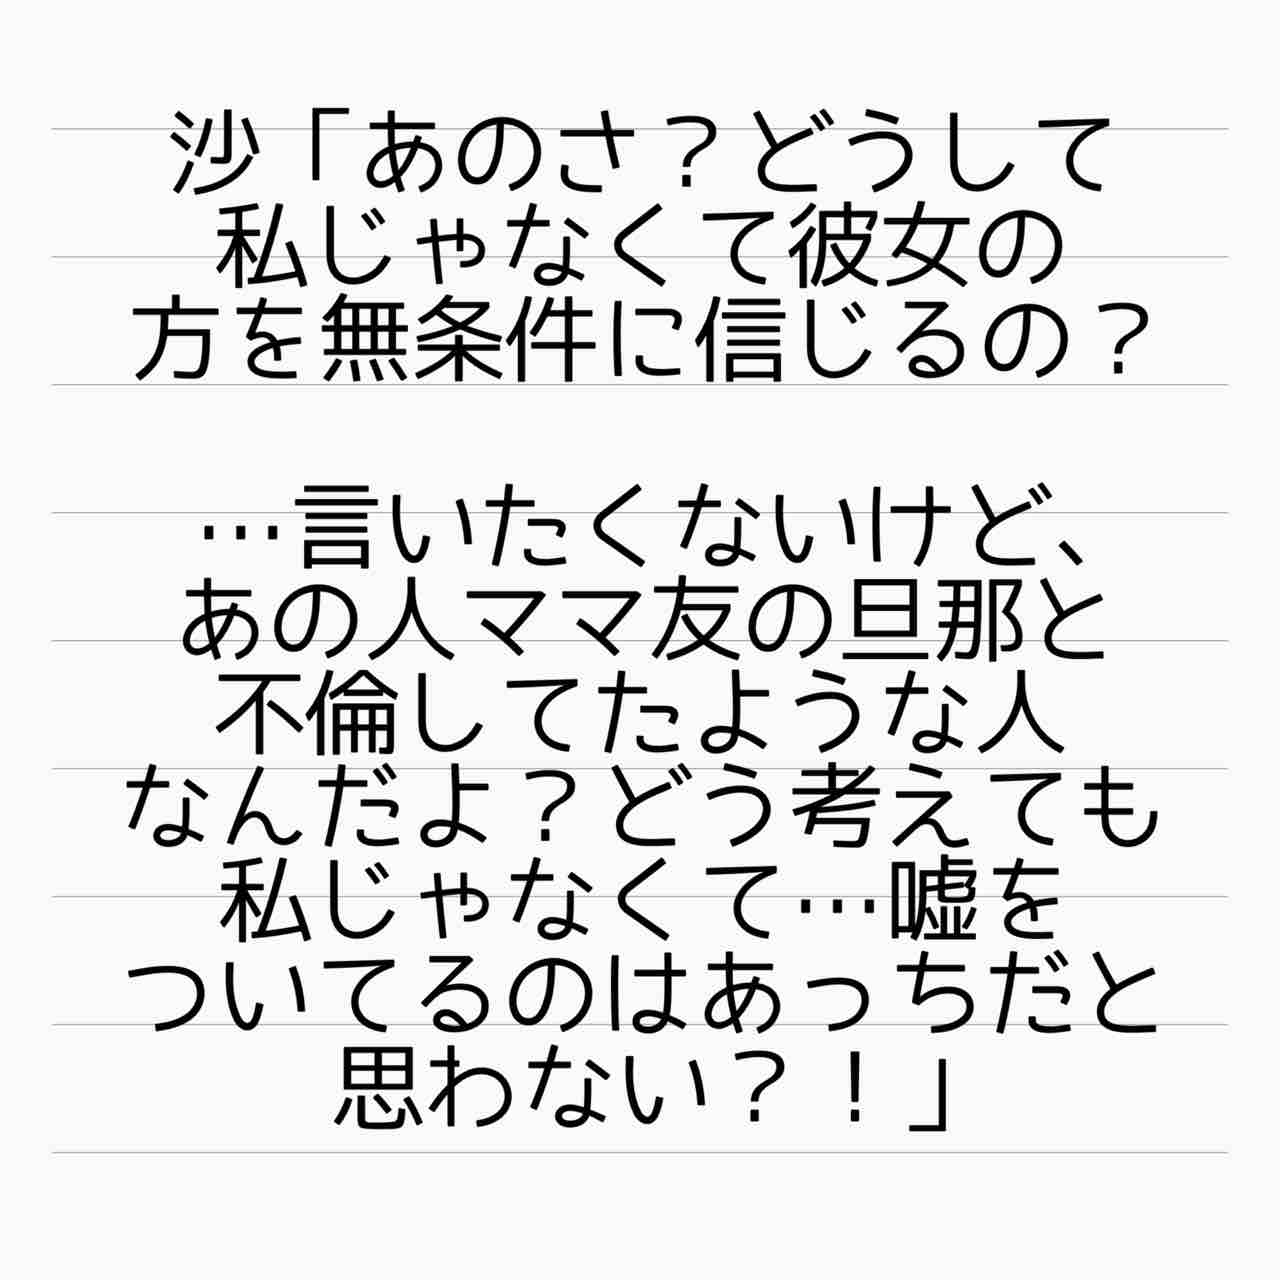 沙「あのさ？どうして
私じゃなくて彼女の
方を無条件に信じるの？
…言いたくないけど、
あの人ママ友の旦那と
不倫してたような人
なんだよ？どう考えても
私じゃなくて…嘘を
ついてるのはあっちだと
思わない？！」